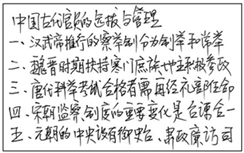 中国古代官员的选拔与管理
一、汉武帝推行的察举制分为制举和常举
二、魏晋时期扶持寒门庶族地主积极参政
三、唐代科举考试合格者需再经礼部任命
四、宋朝监察制度的重要变化是台谏合一
五、元朝的中央设有御史台、肃政廉访司